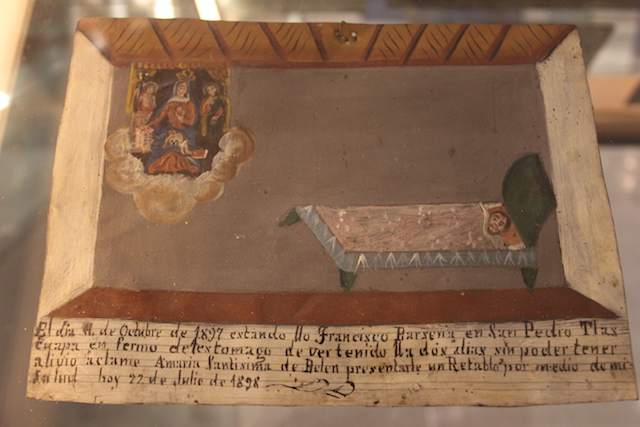 El día 11 de Octubre de 1897 estando llo Francisco Barsena en San Pedro Tlas
cuapa en fermo del estomago de vertenido lla dos dias sin poder tener
alivio aclame Amaria Santisima de Belen presentarle un Retablo por medio de mi
salud hoy 22 de Julio de 1898